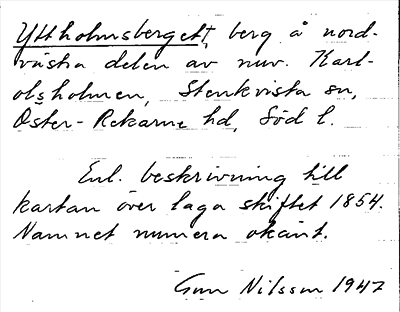 Yttholmsberget†, berg å nord-
västra delen av nuv. Karl-
olsholmen, Stenkvista sn,
Öster-Rekarne hd, Söd l.
Enl. beskrivning till
kartan över laga skiftet 1854.
Namnet numera okänt.
Gun Nilsson 1947